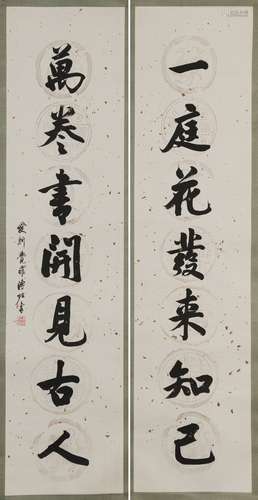 一庭花發來知己
萬卷書開見古人